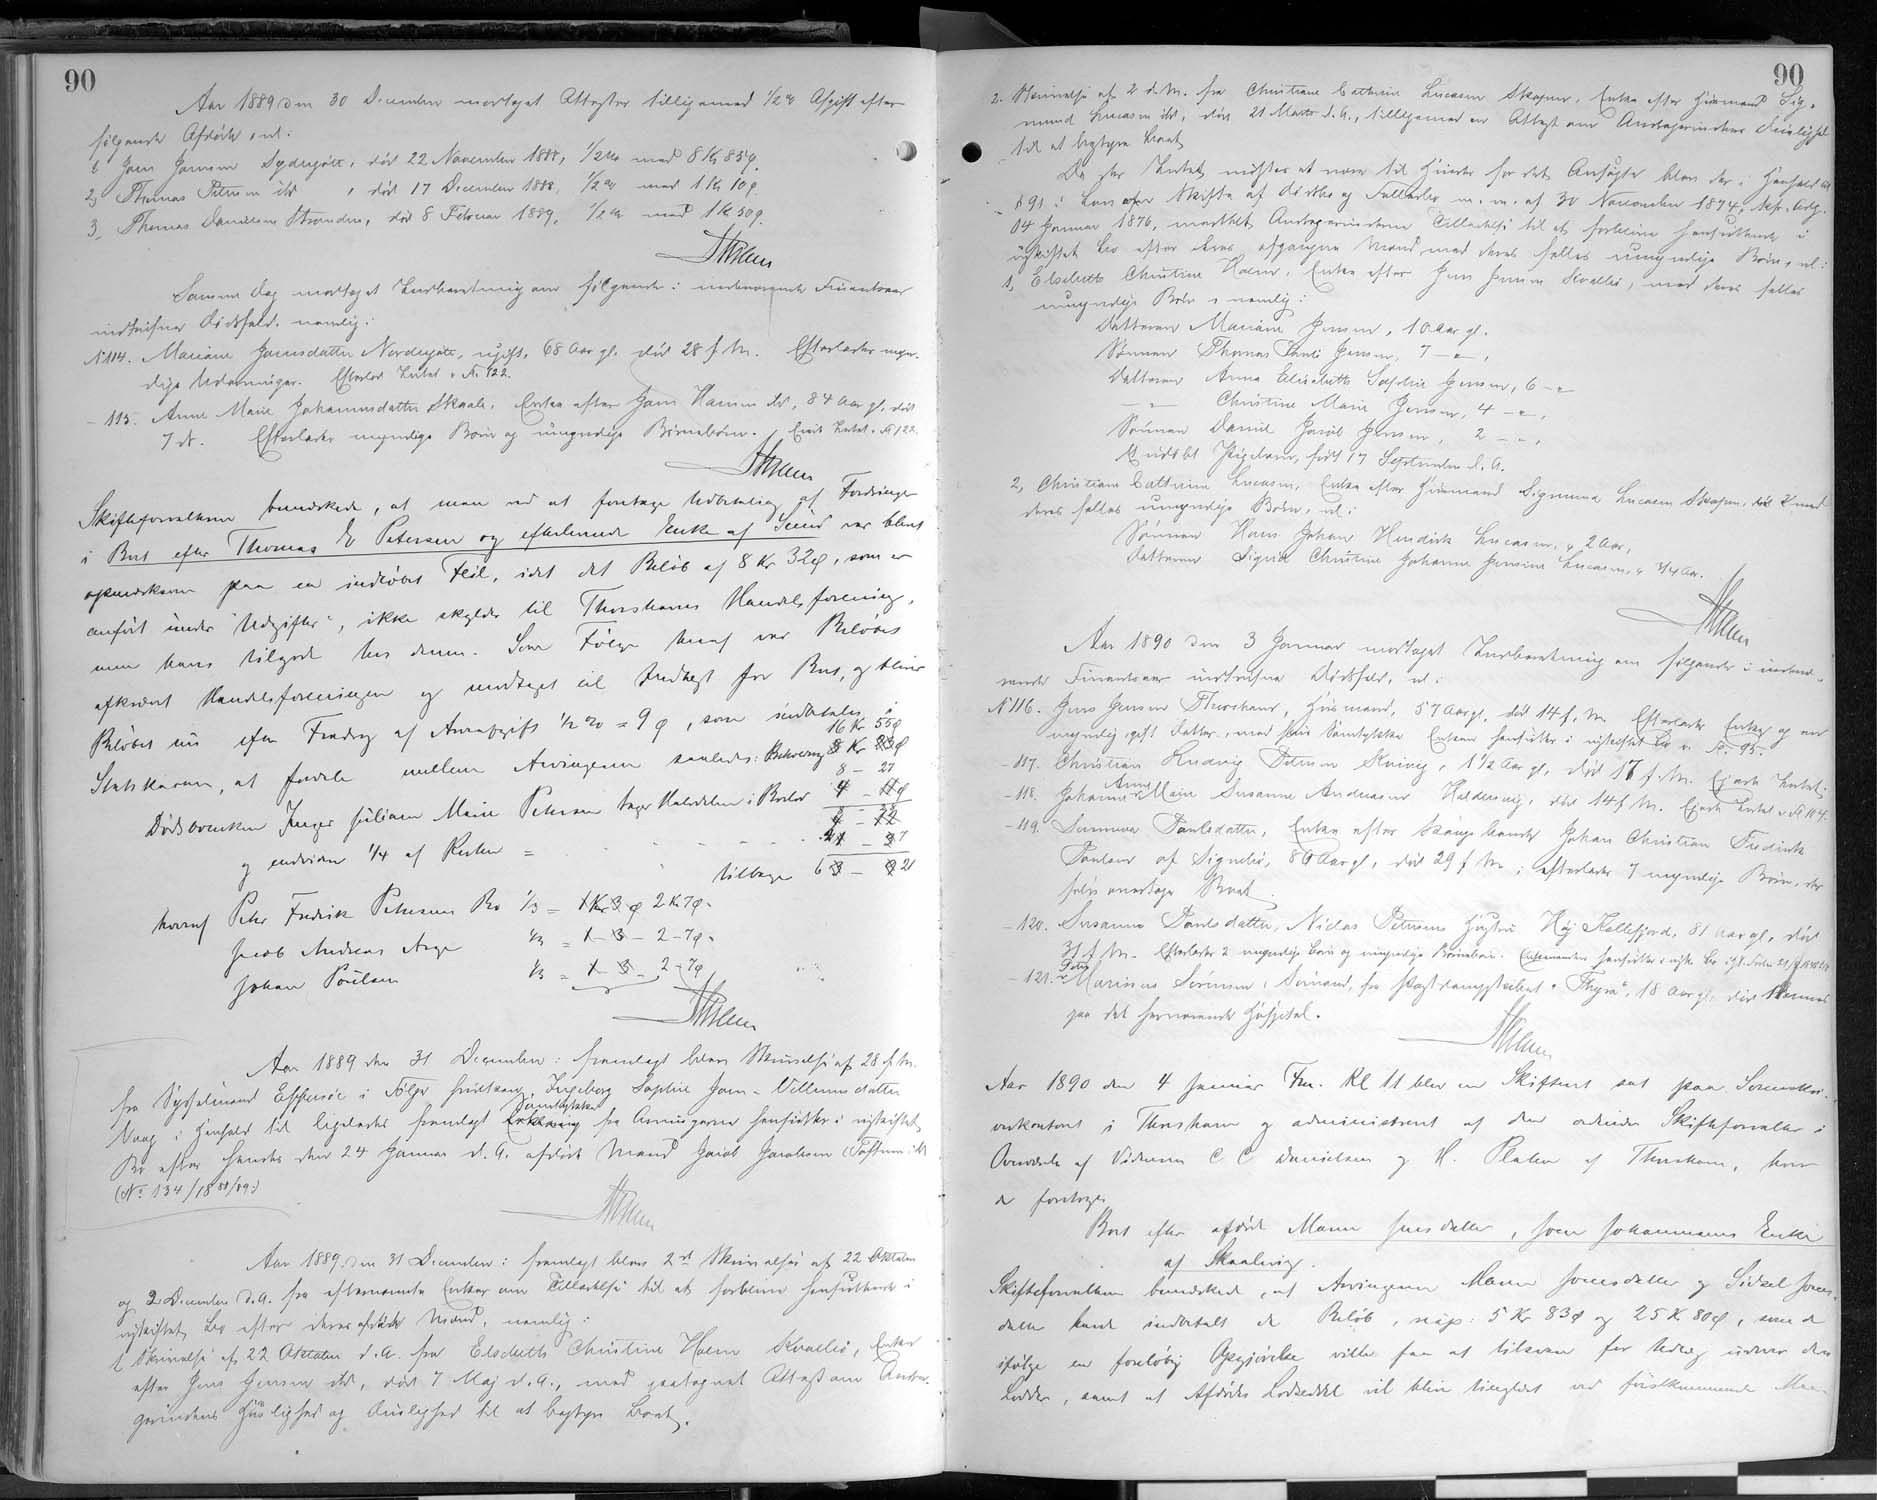 90
Aar 1889 den 30 December modtaget Attester tilligemed 1/2 % Afgift efter
følgende Afdøde, nl.
1, Joen Joensen Sydregøte, død 22 November 1888, 1/2 % med 8 Kr 85 ø.
2, Thomas Petersen ibd , død 17 December 1888, 1/2 % med 1 Kr 10 ø.
3, Thomas Danielsen Strendre, død 8 Februar 1889, 1/2 % med 1 Kr 50 ø.
Samme Dag modtaget Indberetning om følgende i indeværende Finantsaar
indtrufne Dødsfald, nemlig:
N 114. Mariane Joensdatter Nordregøte, ugift, 68 Aar gl. død 28 f. M. Efterlader myn-
dige Udarvinger. Efterlod Intet v. N. 122.
- 115. Anne Marie Johannesdatter Skaale, Enke efter Joen Hansen ibd, 84 Aar gl, død
7 d. Efterlader myndige Børn og umyndige Børnebørn. Eiede Intet v. N 122.
Skifteforvalteren bemærkede, at man ved at foretage Udbetaling af Fordringer
i Boet efter Thomas Petersen og efterlevende Enke af Sund var blevet
opmærksom paa en indløbet Feil, idet det Beløb af 8 Kr 32 ø, som er
anført under "Udgifter", ikke skyldes til Thorshavns Handelsforening,
men haves tilgode hos denne. Som Følge heraf var Beløbet
afkrævet Handelsforeningen og modtaget til Indtægt for Boet, og bliver
Beløbet nu efter Fradrag af Arveafgift 1/2 % = 9 ø, som indbetales i
Statskassen, at fordele mellem Arvingerne saaledes: Beholdning 16 Kr 55 ø
Dødsboenken Inger Juliane Marie Petersen tager Halvdelen i Boslod 8 - 27
og endvidere 1/4 af Resten =
tilbage 6 - 21
hvoraf Peter Fredrik Petersens Bo 1/3 = 2 Kr 7 ø.
Jacob Andreas 1/3 = 2 - 7 ø.
Johan Poulsen 1/3 = 2 - 7 ø
Aar 1889 den 31 December: fremlagt blev Skrivelse af 28 f. M.
fra Sysselmand Effersøe i Følge hvilken Ingeborg Sophie Joen-Villumsdatter
Vaag i Henhold til ligeledes fremlagt Samtykke fra Arvingerne hensidder i uskiftet
Bo efter hendes den 24 Januar d. A. afdøde Mand Jacob Jacobsen
(N. 134/1888/89)
Aar 1889 den 31 December: fremlagt blev 2de Skrivelser af 22 Oktober
og 2 December d. A. fra efternævnte Enker om Tilladelse til at forblive hensiddende i
uskiftet Bo efter deres afdøde Mænd, nemlig:
1, Skrivelse af 22 Oktober d. A. fra Elsebeth Christine Holm Kvalbø, Enke
efter Jens Jensen ibd, død 7 Maj d. A., med paategnet Attest om Andra-
gerindens Huslighed og Duelighed til at bestyre Boet.
90
2. Skrivelse af 2 d. M. fra Christiane Cathrine Lucasen Skopun, Enke efter Huusmand Sig-
mund Lucasen ibd, død 21 Marts d. A., tilligemed en Attest om Andragerindens Duelighed
til at bestyre Boet.
Da der Intet vidstes at være til Hinder for det Ansøgte blev der i Henhold til
§ 91 i Lov om Skifte af Dødsbo og Fællesbo m. m. af 30 November 1874, kfr. Adg.
04 Januar 1876, meddelt Andragerinderne Tilladelse til at forblive hensiddende i
uskiftet Bo efter deres afgangne Mænd med deres fælles umyndige Børn, nl:
1, Elsebeth Christine Holm, Enke efter Jens Jensen Kvalbø, med deres fælles
umyndige Børn, nemlig:
Datteren Mariane Jensen, 10 Aar gl.
Sønnen Thomas Pauli Jensen, 7 - " ,
Datteren Anna Elisabeth Sophie Jensen, 6 - "
- " - Christine Marie Jensen, 4 - " ,
Sønnen Daniel Jacob Jensen, 2 - " ,
Et udøbt Pigebarn, født 17 September d. A.
2, Christiane Cathrine Lucasen, Enke efter Huusmand Sigmund Lucasen Skopun, med
deres fælles umyndige Børn, nl:
Sønnen Hans Johan Hendrik Lucasen, 2 Aar,
Datteren Sigrid Christine Johanne Jensine Lucasen, 3/4 Aar.
Aar 1890 den 3 Januar modtaget Indberetning om følgende i indevæ-
rende Finantsaar indtrufne Dødsfald, nl:
N 116. Jens Jensen Thorshavn, Huusmand, 57 Aar gl. død 14 f. M. Efterlader Enke og en
myndig, gift Datter, med hvis Samtykke Enken hensidder i uskiftet Bo v. N. 95.
- 117. Christian Ludvig Petersen Kvivig, 1 1/2 Aar gl, død 17 f. M. Ejede Intet.
- 118. Johanne Anne Marie Susanne Andreasen Haldersvig, død 14 f. M. Ejede Intet v. N 104.
- 119. Sunneva Poulsdatter, Enke efter Kongsbonde Johan Christian Fredrik
Poulsen af Signebø, 80 Aar gl, død 29 f. M.; efterlader 7 myndige Børn, der
selv overtage Boet.
- 120. Susanne Poulsdatter, Niclas Petersens Hustru Høj Kollefjord, 81 Aar gl, død
31 f. M. Efterlader 2 myndige Børn og myndige Børnebørn. Enkemanden hensidder i uskiftet Bo
- 121. Peter Marinus Sørensen, Sømand, fra Postdampskibet "Thyra", 18 Aar gl, død
paa det herværende Hospital.
Aar 1890 den 4 Januar Fm. Kl 11 blev en Skifteret sat paa Sorenskri-
verkontoret i Thorshavn og administreret af den ordinære Skifteforvalter i
Overværelse af Vidnerne C C Danielsen og H. Platou af Thorshavn, hvor
da foretoges
Boet efter afdøde Maren Joensdatter, Joen Johannesens Enke
af Skaaling.
Skifteforvalteren bemærkede, at Arvingerne Maren Joensdatter og Sidsel Joens-
datter havde indbetalt de Beløb, resp: 5 Kr 83 ø og 25 K 80 ø, som de
ifølge en foreløbig Opgjørelse ville faa at tilsvare for Udlæg udover deres
Lodder, samt at Afdødes Lodseddel vil blive tinglæst ved førstkommende